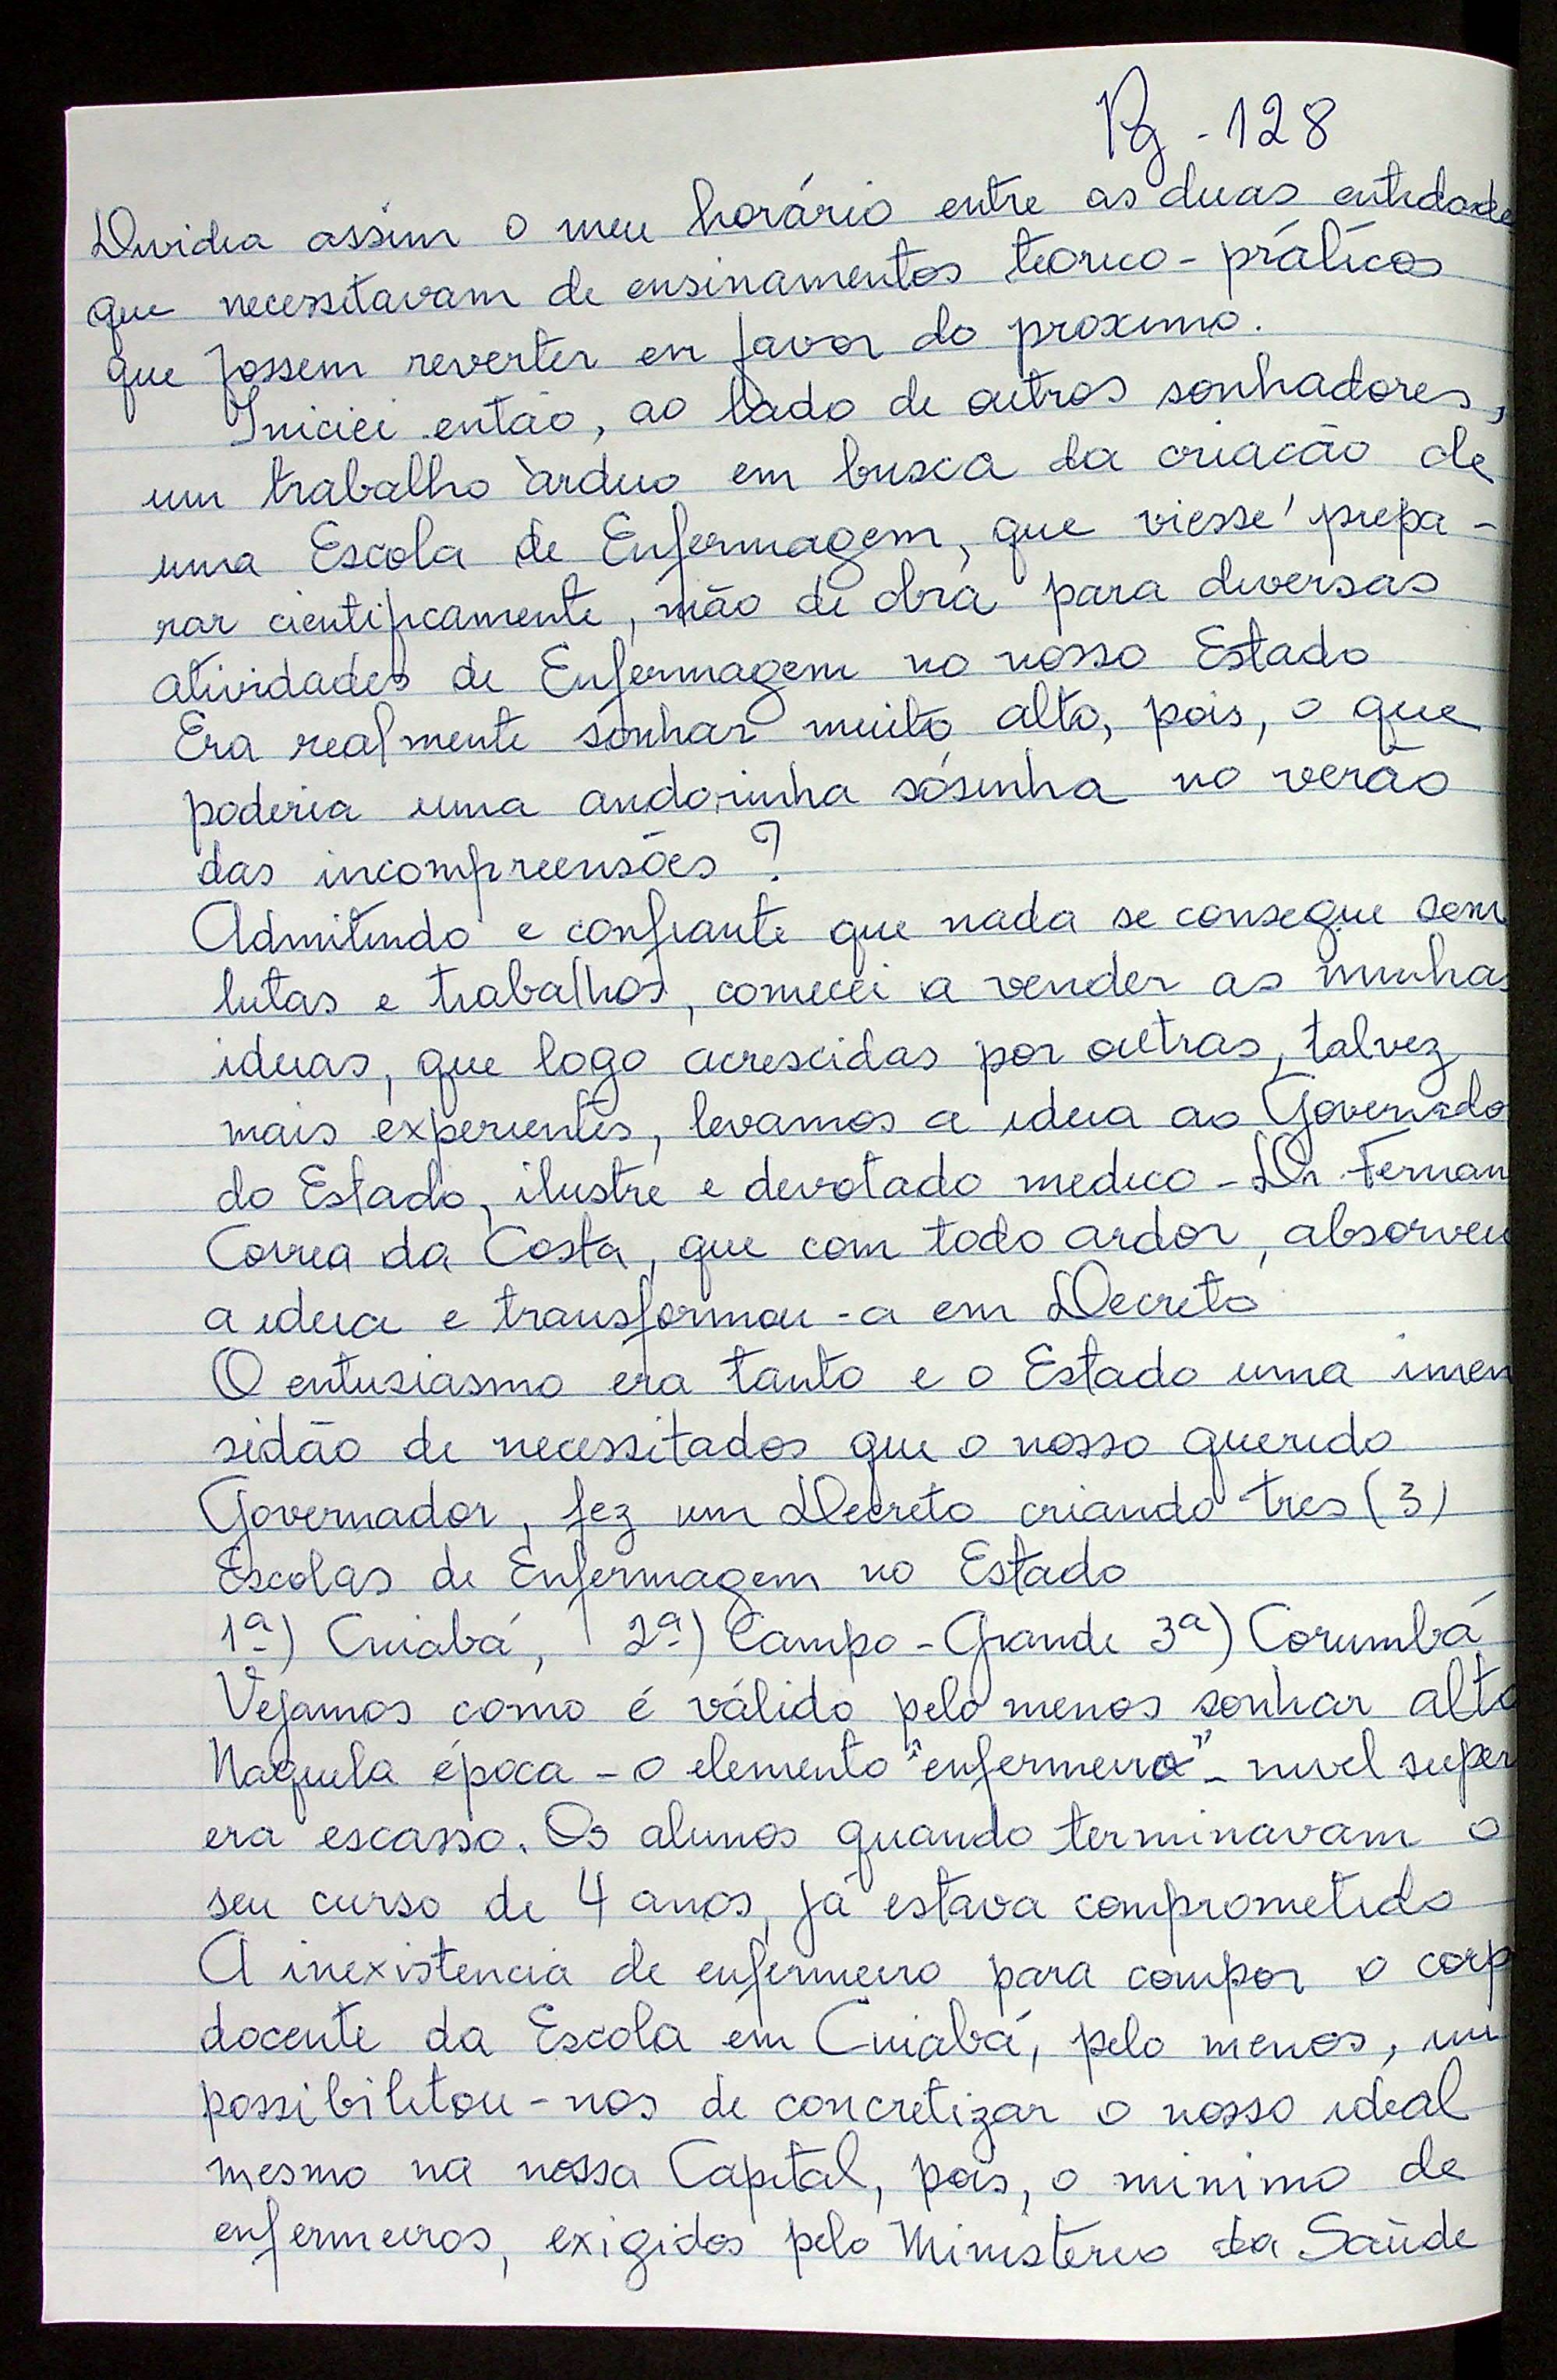 Pg - 128
Dividia assim o meu horário entre as duas entidade
que necessitavam de ensinamentos teorico - práticos
que fossem reverter em favor do proximo.
Iniciei então, ao lado de outros sonhadores,
um trabalho àrduo em busca da criacão de
uma Escola de Enfermagem, que viesse prepa -
rar cientificamente, mão de obra para diversas
atividades de Enfermagem no nosso Estado
Era realmente sonhar muito alto, pois, o que
poderia uma andorinha sósinha no verão
das incompreensões ?
Admitindo e confiante que nada se consegue sem
lutas e trabalhos, comecei a vender as minhas
ideias, que logo acrescidas por outras, talvez
mais experientes, levamos a ideia ao Governado
do Estado, ilustre e devotado medico - Dr. Fernan
Correa da Costa, que com todo ardor, absorveu
a ideia e transformou - a em Decreto
O entusiasmo era tanto e o Estado uma imen
sidão de necessitados que o nosso querido
Governador, fez um Decreto criando tres (3)
Escolas de Enfermagem no Estado
1ª) Cuiabá, 2ª) Campo - Grande 3ª) Corumbá
Vejamos como é válido pelo menos sonhar alto
Naquela época - o elemento "enfermeiro" - nivel super
era escasso. Os alunos quando terminavam o
seu curso de 4 anos, já estava comprometido
A inexistencia de enfermeiro para compor o corp
docente da Escola em Cuiabá, pelo menos, im
possibilitou - nos de concretizar o nosso ideal
mesmo na nossa Capital, pois, o minimo de
enfermeiros, exigidos pelo Ministerio da Saúde